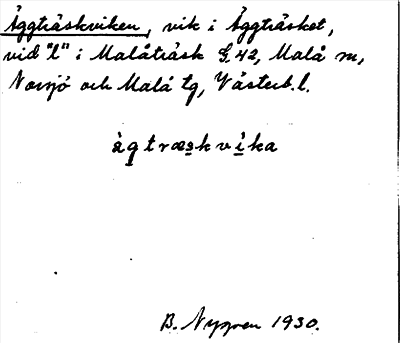 Åggträskviken, vik i Åggträsket,
vid "l" i Malåträsk G. 42, Malå sn,
Norsjö och Malå tg, Västerb. l.
ågtræskvika
B. Nygren 1930.